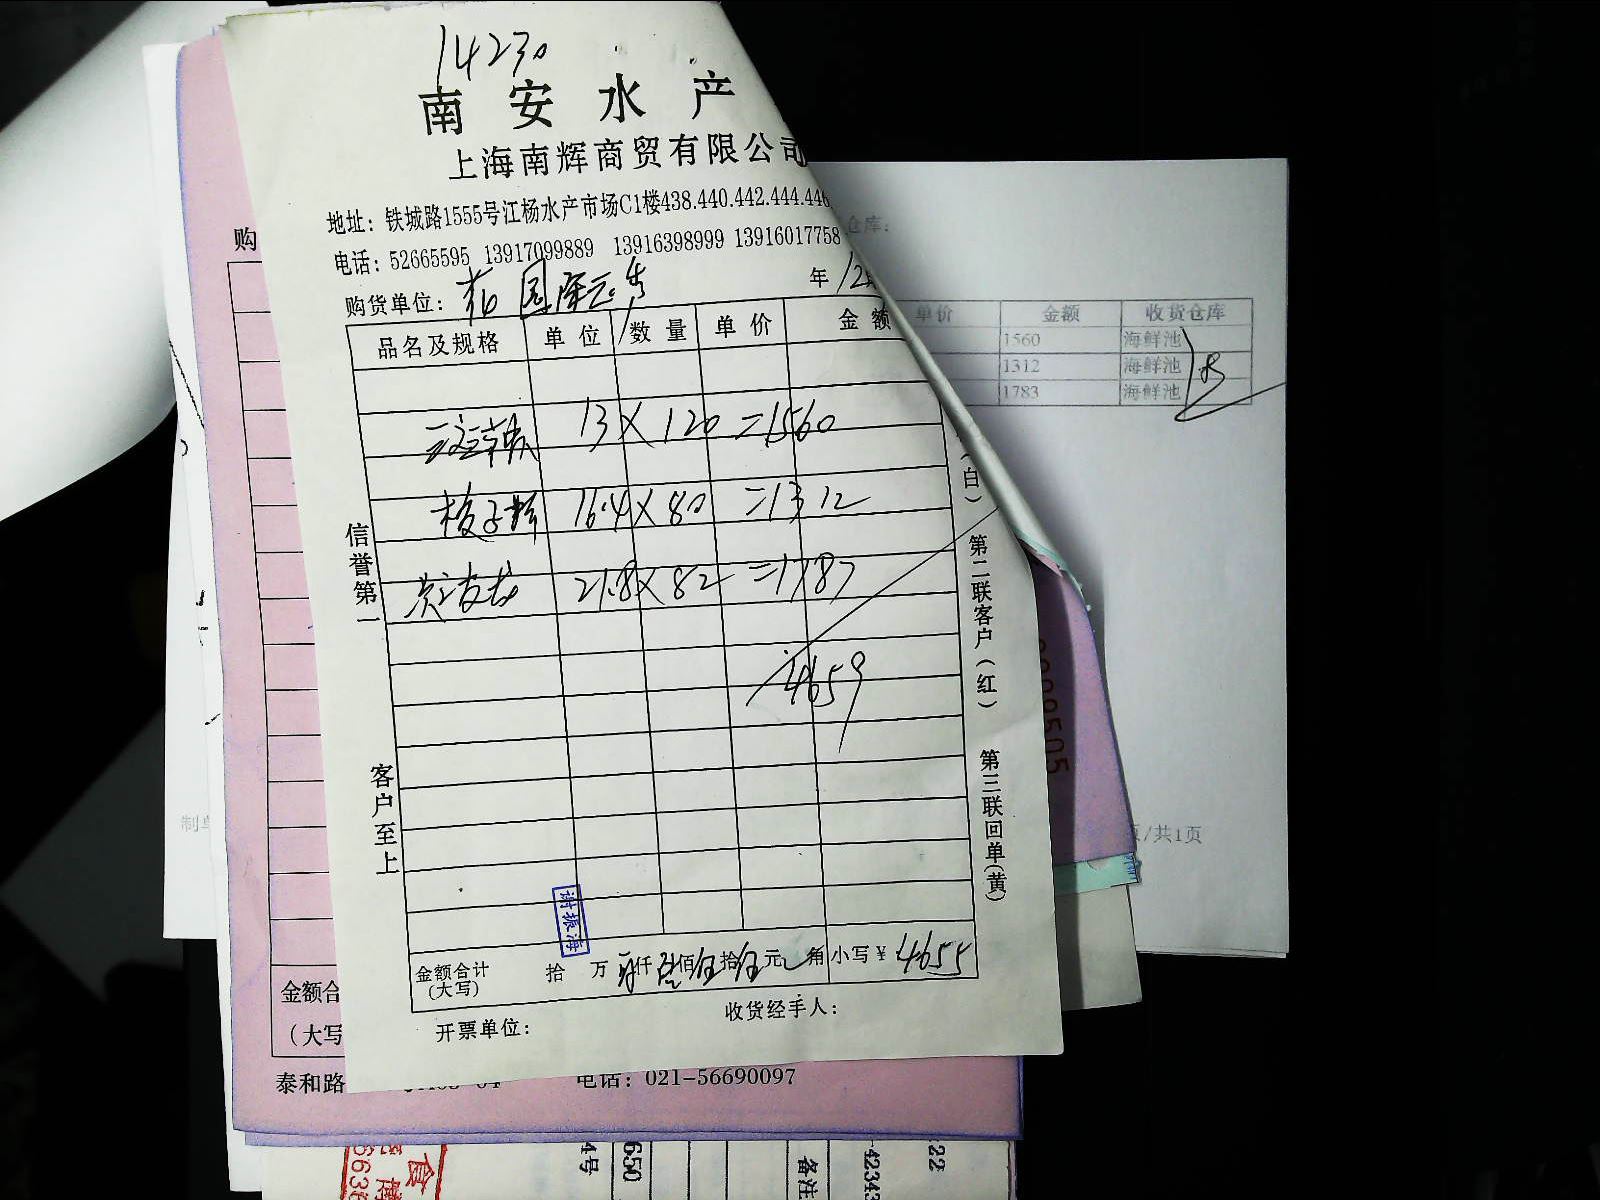 14230
南安水产
上海南辉商贸有限公司
地址：铁城路1555号江杨水产市场C1楼438.440.442.444.446
电话：52665595 13917099889 13916398999 13916017758
仓库：
购
购货单位：
年 12
品名及规格 单位 数量 单价 金额
单价 金额 收货仓库
1560 海鲜池
1312 海鲜池
1783 海鲜池
13×120=1560
梭子蟹 16.4×80=1312
21.8×82=1787
4659
信誉第一
客户至上
（白）
第二联客户（红）
第三联回单（黄）
制单
页/共1页
谢振海
金额合计（大写） 拾 万 仟 佰 拾 元 角 小写￥ 4655
开票单位： 收货经手人：
金额合
（大写
泰和路
电话：021-56690097
4号
650
备注
-42343
22